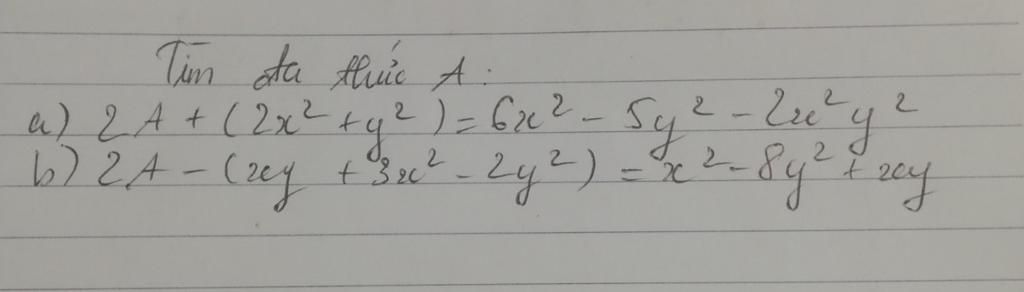 Tìm đa thức A:
a) 2A + (2x² + y²) = 6x² - 5y² - 2x²y²
b) 2A - (xy + 3x² - 2y²) = x² - 8y² + xy